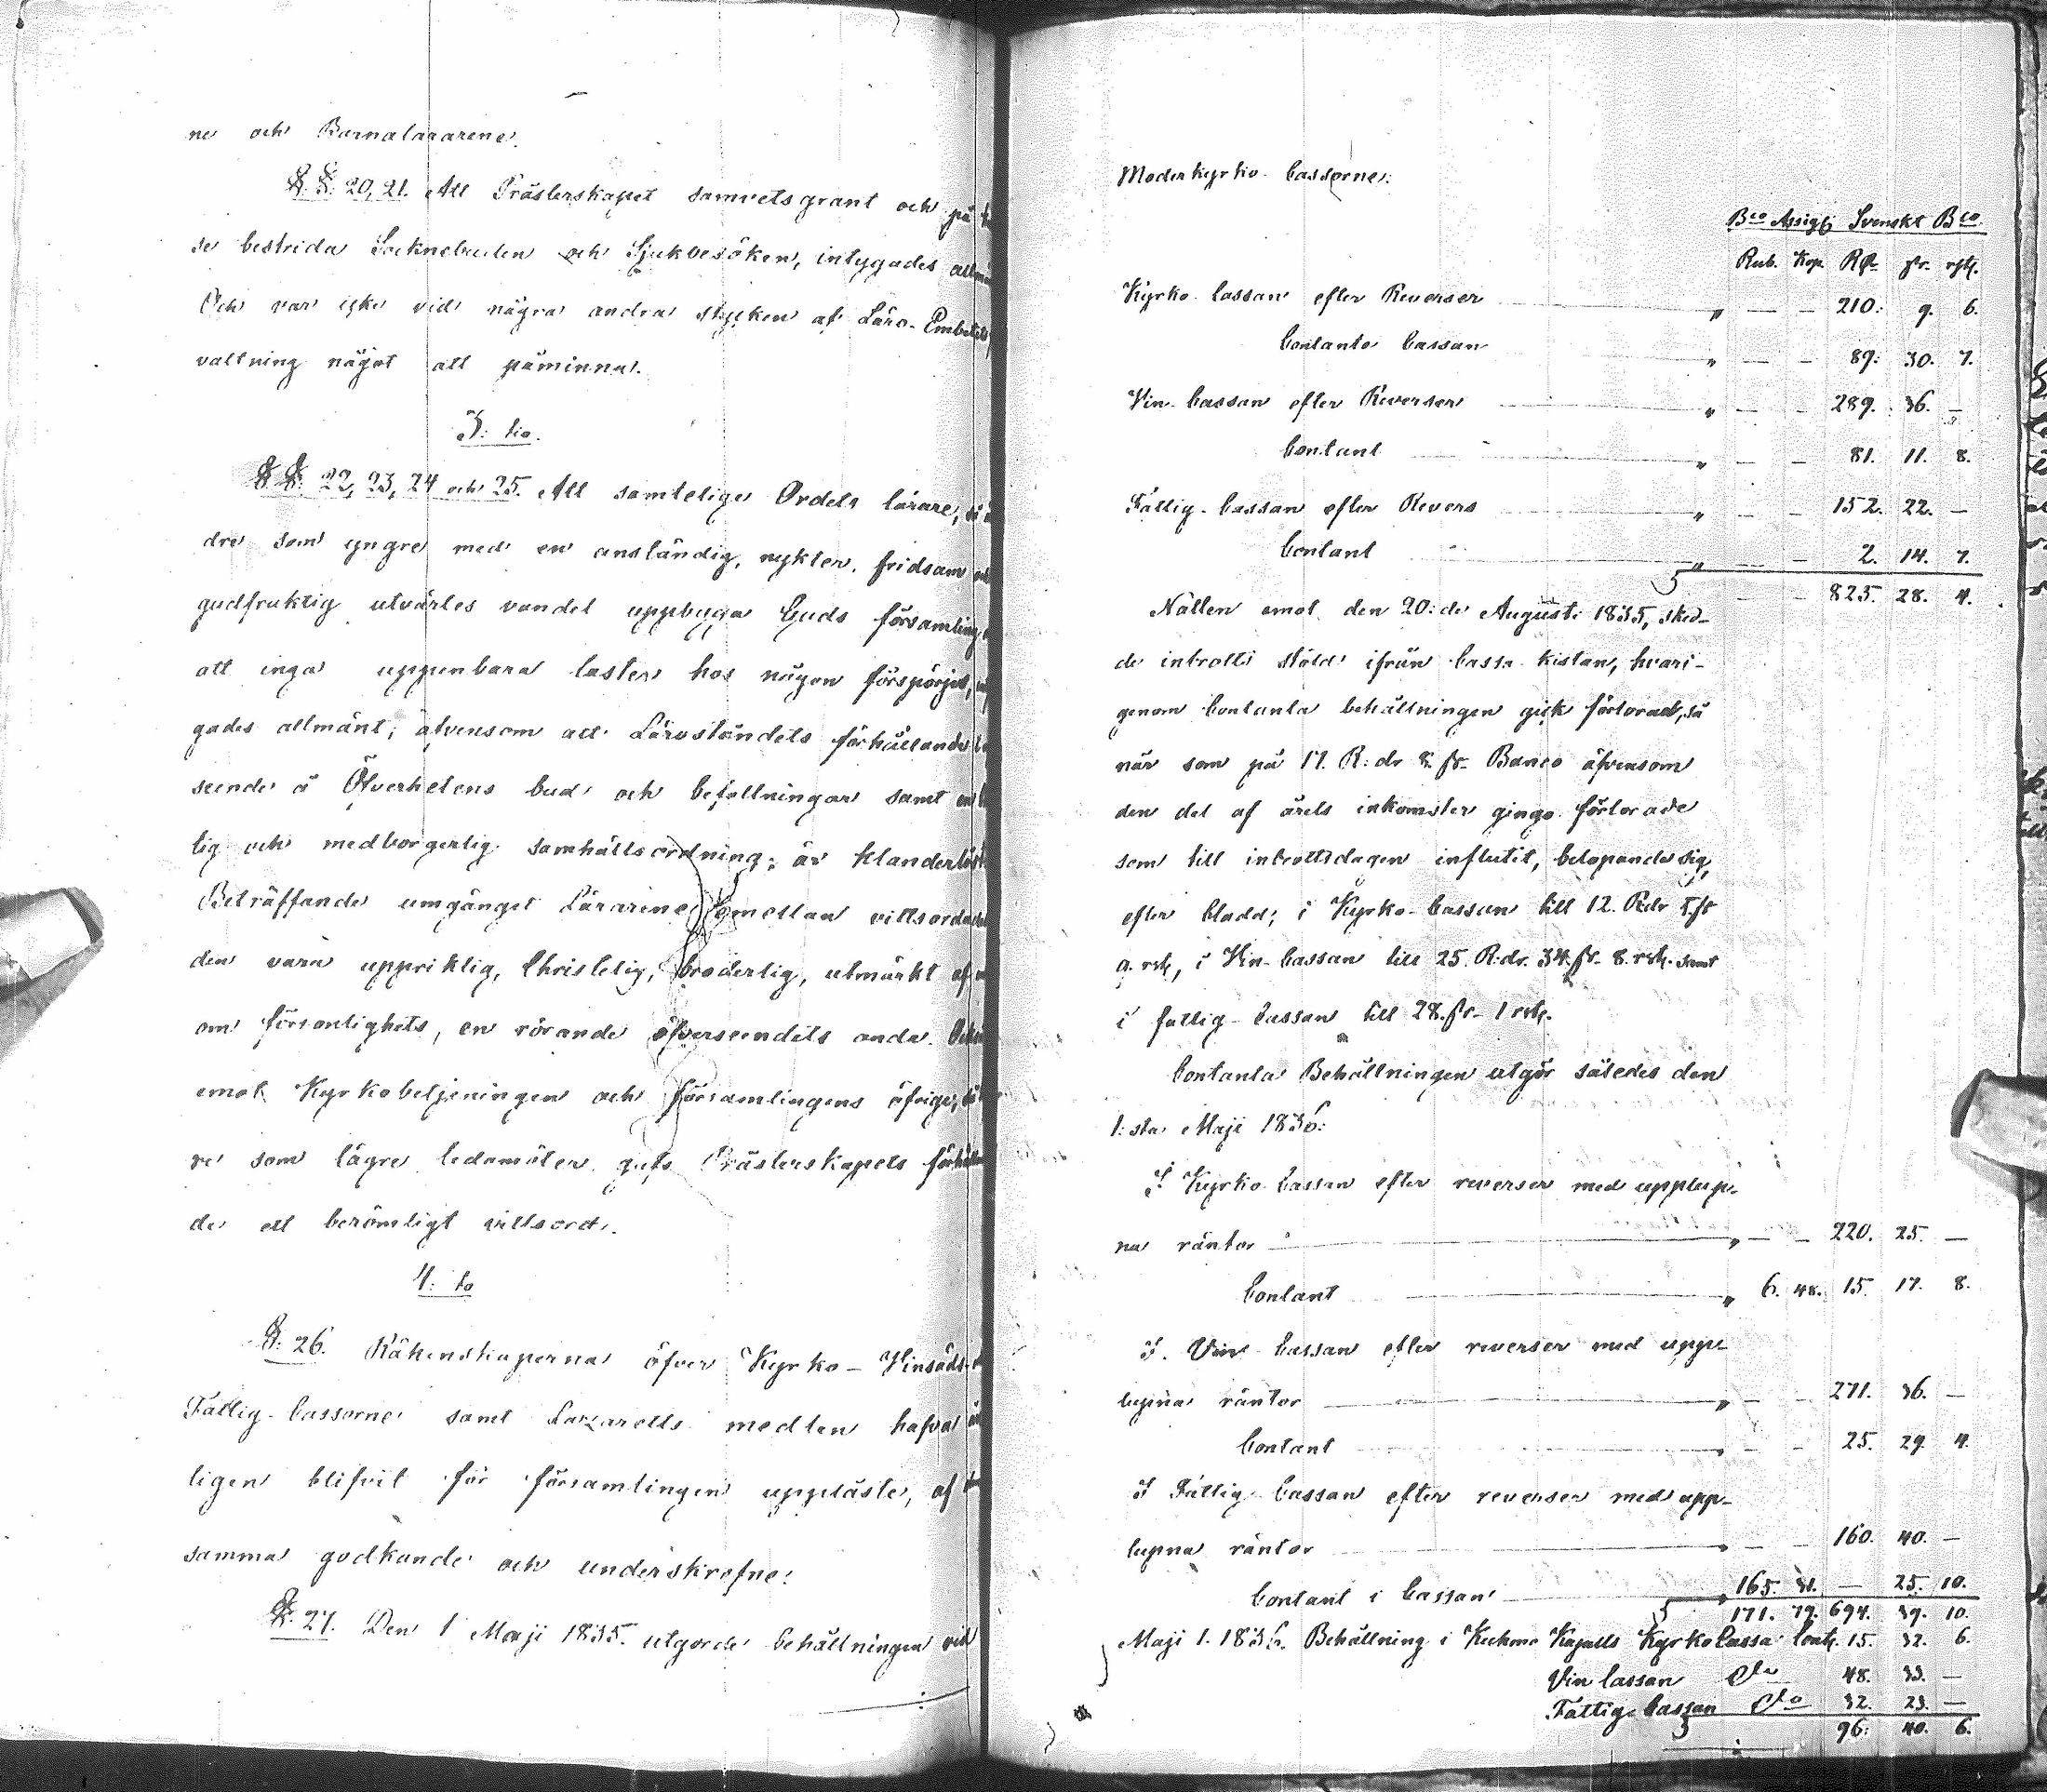 ne och Barnalärarene.
§§. 20, 21. Att Prästerskapet samvetsgrant och på
se bestrida Socknebuden och Sjukbesöken, intygades
Och var icke vid några andra stycken af Läro-Embetets
valtning något att påminna.
3: tio.
§§. 22, 23, 24 och 25. Att samtelige Ordets lärare, så
dre som yngre med en anständig, nykter, fridsam och
gudfruktig utvärtes vandel uppbygga Guds församling,
att inga uppenbara laster hos någon förspörjes,
gades allmänt; äfvensom att Lärostöndets förhållande
seende å Öfverhetens bud och befallningar samt
lig och medborgerlig samhällsordning, är klanderlöst
Beträffande umgänget Lärarene emellan vittsordades
den vara uppriktig, Christelig, broderlig, utmärkt af
om försonlighets, en rörande öfverseendets anda. Och
emot Kyrkobetjeningen och församlingens öfrige,
re som lägre ledamöter gafs Prästerskapets förhållan
de ett berömligt vittsord.
4: to
§. 26. Räkenskaperna öfver Kyrko- Vinsäds-
Fattig-Cassorne samt Lazaretts medlen hafva
ligen blifvit för församlingen uppläste, af
samma godkände och underskrefne.
§. 27. Den 1 Maji 1835. utgorde behållningen vid
Moderkyrko-Cassorne:
Bco Assigₓ Svenskt Bco.
Rub. Kop. Rdr ſk. rst.
Kyrko-Cassan efter Reverser „ — — 210. 9. 6.
Contanta Cassan „ — — 89. 30. 7.
Vin-Cassan efter Reverser „ — — 289. 36. —
Contant „ — — 81. 11. 8.
Fattig-Cassan efter Revers „ — — 152. 22. —
Contant „ — — 2. 14. 7.
S „ — — 825. 28. 4.
Natten emot den 20:de Augusti 1835, sked-
de inbrotts stöld ifrån Cassa-kistan, hvari-
genom Contanta behållningen gick förlorad, så
när som på 17. R:dr 8. ſk. Banco äfvensom
den del af årets inkomster gingo förlorade
som till inbrottsdagen influtit, belöpande sig,
efter Cladd; i Kyrko-Cassan till 12. Rdr ſk
9. rst, i Vin-Cassan till 25. R:dr. 34. ſk. 8. rst. samt
i fattig-Cassan till 28. ſk. 1 rst.
Contanta Behållningen utgör således den
1:sta Maji 1836:
I Kyrko-Cassan efter reverser med upplup-
na räntor „ — — 220. 25. —
Contant „ 6. 48. 15. 17. 8.
I Vin-Cassan efter reverser med upp-
lupna räntor „ — — 271. 36. —
Contant „ — — 25. 29. 4.
I Fattig-Cassan efter reverser med upp-
lupna räntor „ — — 160. 40. —
Contant i Cassan „ 165. 31. — 25. 10.
S 171. 79. 694. 39. 10.
Maji 1. 1836. Behållning i Kapells Kyrko Cassa Cont. 15. 32. 6.
Vin Cassan do 48. 33. —
Fattig-Cassan do 32. 23. —
S 96. 40. 6.